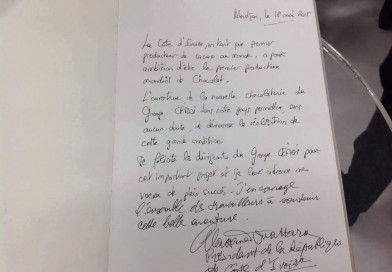 Abidjan, le 18 mai 2015
La Côte d'Ivoire, en tant que premier
producteur de cacao au monde, a pour
ambition d'être le premier producteur
mondial de Chocolat.
L'ouverture de la nouvelle chocolaterie du
Groupe CEMOI dans notre pays permettra, sans
aucun doute, de démarrer la réalisation de
cette grande ambition.
Je félicite les dirigeants du Groupe CEMOI pour
cet important projet et je leur adresse mes
vœux de plein succès. J'encourage
l'ensemble des travailleurs à
cette belle aventure.
Alassane Ouattara
Président de la République
de Côte d'Ivoire